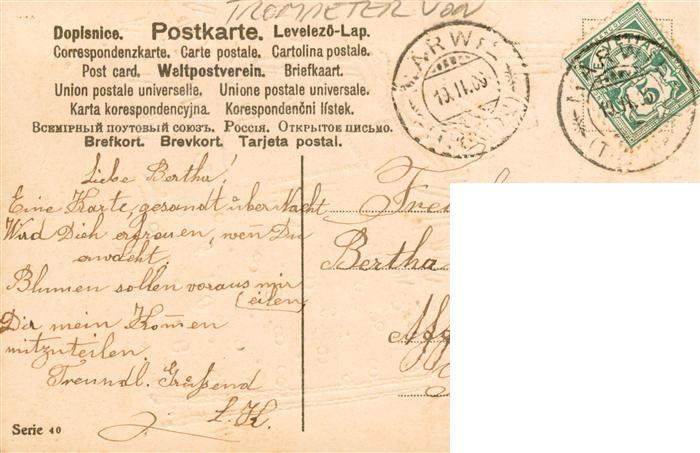 TROMPETER VON
Dopisnice. Postkarte. Levelező-Lap.
Correspondenzkarte. Carte postale. Cartolina postale.
Post card. Weltpostverein. Briefkaart.
Union postale universelle. Unione postale universale.
Karta korespondencyjna. Korespondenční lístek.
Всемірный поутовый союзъ. Россія. Открытое письмо.
Brefkort. Brevkort. Tarjeta postal.
MARWIL
10.II.05
5
Liebe Bertha!
Eine Karte, gesandt über Nacht
Wird Dich erfreuen, wen̄ Du
erwacht.
Blumen sollen voraus mir
eilen,
Dir mein Kom̄en
mitzuteilen.
Freundl. Grüßend
L. K.
Bertha
Serie 40